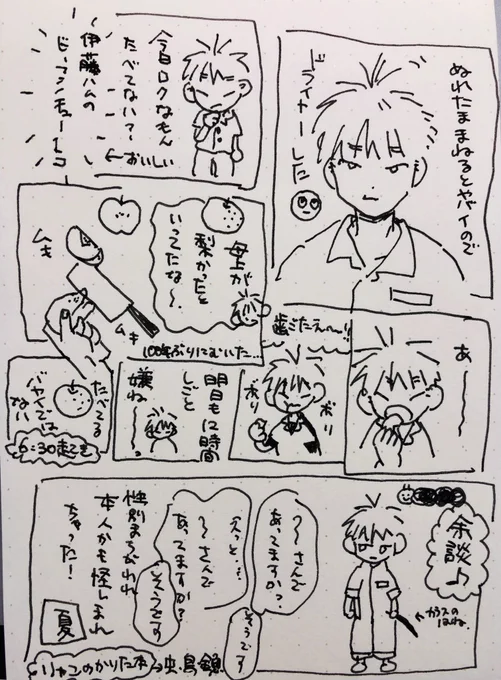 ぬれたままねるとヤバイので
ドライヤーした
今日ロクなもん
たべてない?
←おいしい
伊藤ハムの
母上が
梨かったと
いってたな〜
ムキ
ムキ
100年ぶりにむいた…
あーーー
歯ごたえ〜〜!!
ボリ
ボリ
明日も12時間
しごと
嫌ね〜〜っ
たべてる
バヤイでは
ない
6:30起き
余談♪
←カラスのはね
〜さんで
あってますか?
そうです
えっと…
〜さんで
あってますか?
そうです
性別まちがわれ
本人かも怪しまれ
ちゃった!
夏
リャンのかりた本